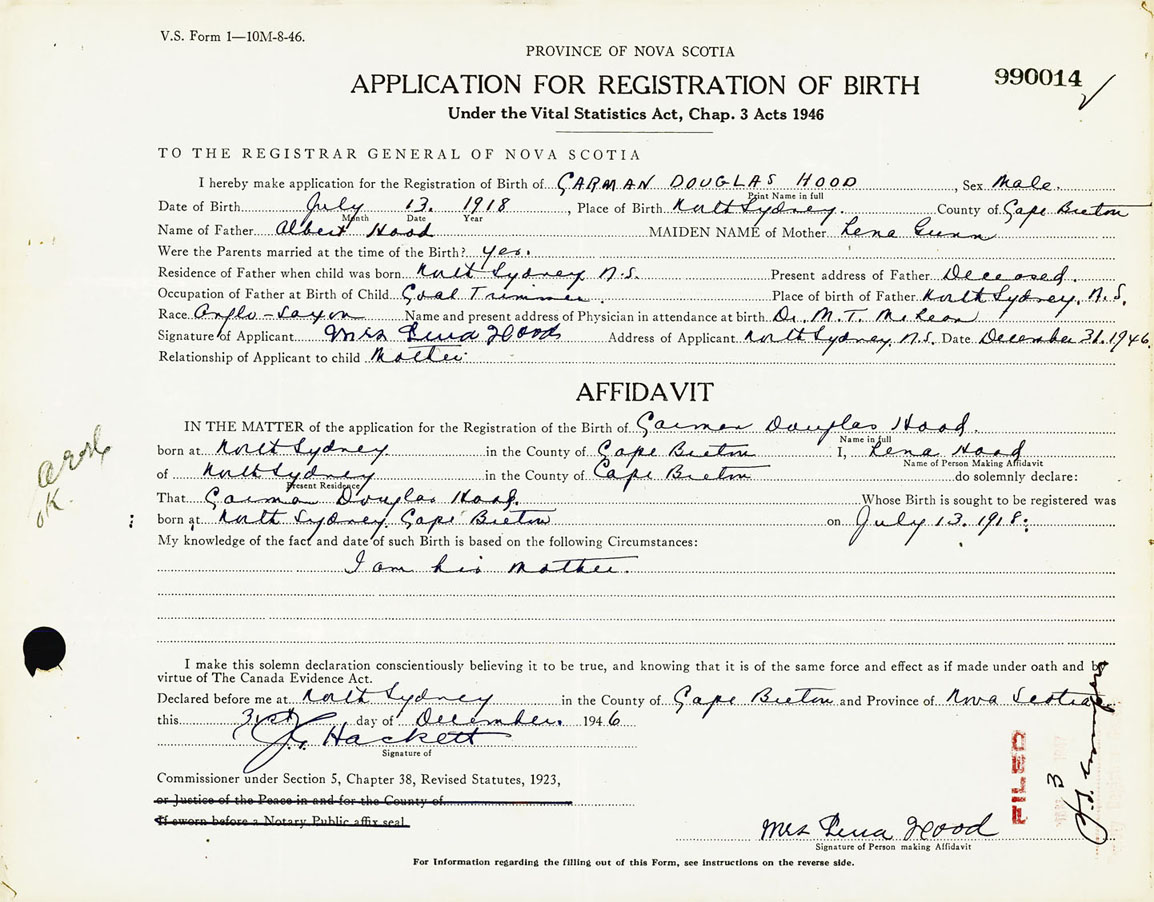 V.S. Form 1—10M-8-46.
PROVINCE OF NOVA SCOTIA
990014
APPLICATION FOR REGISTRATION OF BIRTH
Under the Vital Statistics Act, Chap. 3 Acts 1946
TO THE REGISTRAR GENERAL OF NOVA SCOTIA
I hereby make application for the Registration of Birth of GARMAN DOUGLAS HOOD, Sex Male.
Print Name in full
Date of Birth July 13. 1918, Place of Birth North Sydney. County of Cape Breton
Month Date Year
Name of Father Albert Hood MAIDEN NAME of Mother Lena Gunn
Were the Parents married at the time of the Birth? yes.
Residence of Father when child was born North Sydney N.S. Present address of Father Deceased.
Occupation of Father at Birth of Child Coal Trimmer. Place of birth of Father North Sydney, N.S.
Race Anglo-Saxon Name and present address of Physician in attendance at birth Dr. M. T. McLean
Signature of Applicant Mrs Lena Hood Address of Applicant North Sydney N.S. Date December 31. 1946.
Relationship of Applicant to child Mother
AFFIDAVIT
IN THE MATTER of the application for the Registration of Birth of Garman Douglas Hood.
Name in full
born at North Sydney in the County of Cape Breton I, Lena Hood
Name of Person Making Affidavit
of North Sydney in the County of Cape Breton do solemnly declare:
Present Residence
That Garman Douglas Hood. Whose Birth is sought to be registered was
born at North Sydney Cape Breton on July 13. 1918.
My knowledge of the fact and date of such Birth is based on the following Circumstances:
I am his mother.
OK.
I make this solemn declaration conscientiously believing it to be true, and knowing that it is of the same force and effect as if made under oath and by
virtue of The Canada Evidence Act.
Declared before me at North Sydney in the County of Cape Breton and Province of Nova Scotia
this 31st day of December. 1946
J. Hackett
Signature of
Commissioner under Section 5, Chapter 38, Revised Statutes, 1923,
or Justice of the Peace in and for the County of
If sworn before a Notary Public affix seal
FILED
3
Mrs Lena Hood
Signature of Person making Affidavit
For Information regarding the filling out of this Form, see instructions on the reverse side.